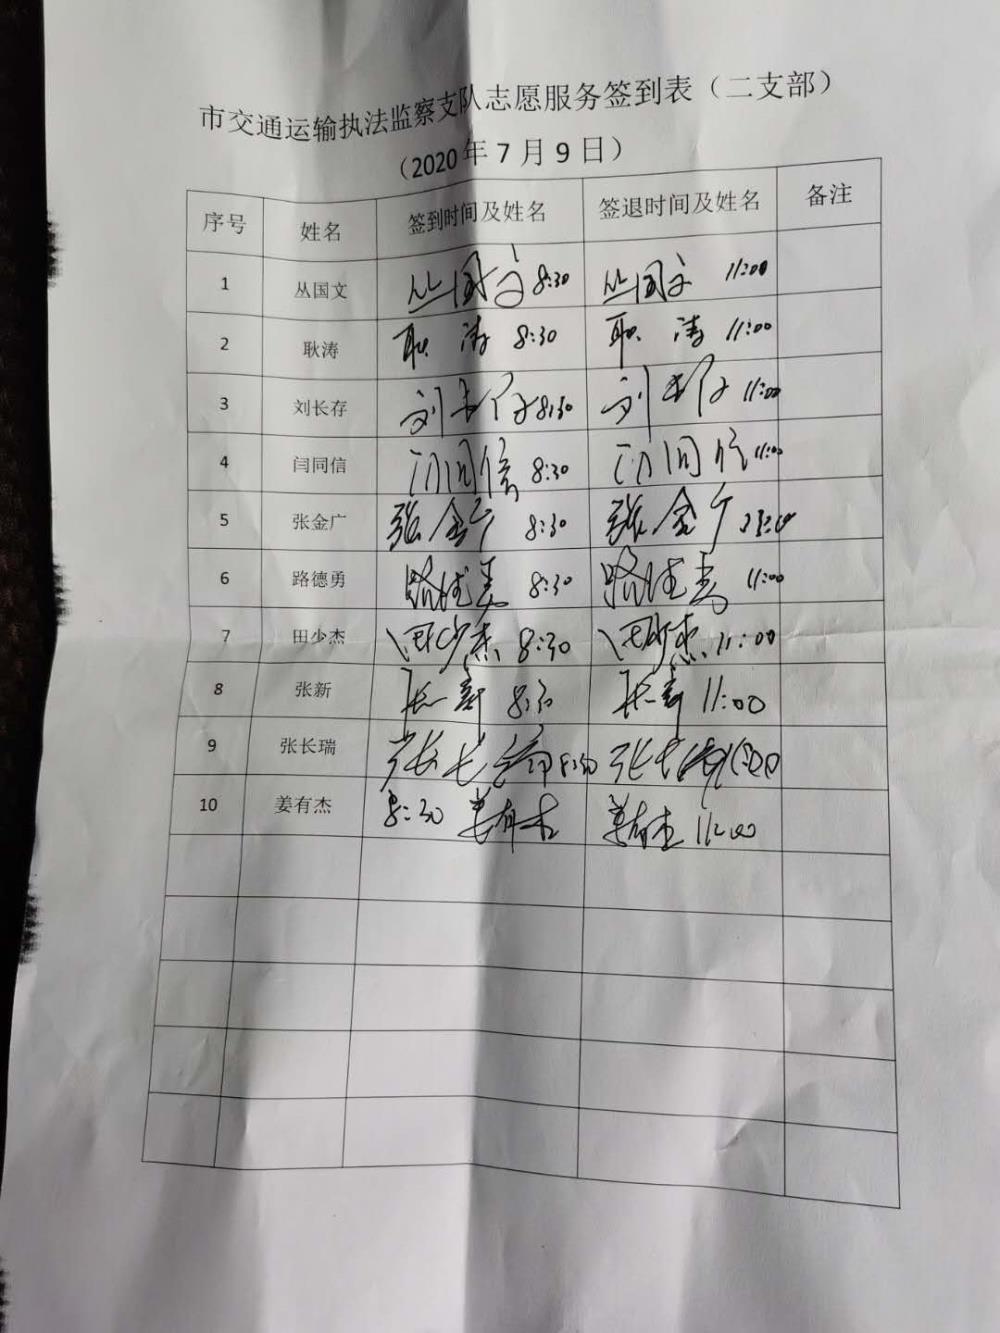 市交通运输执法监察支队志愿服务签到表（二支部）
（2020年7月9日）
序号 姓名 签到时间及姓名 签退时间及姓名 备注
1 丛国文 丛国文 8:30 丛国文 11:00
2 耿涛 耿涛 8:30 耿涛 11:00
3 刘长存 刘长存 8:30 刘长存 11:00
4 闫同信 闫同信 8:30 闫同信 11:00
5 张金广 张金广 8:30 张金广
6 路德勇 路德勇 8:30 路德勇 11:00
7 田少杰 田少杰 8:30 田少杰 11:00
8 张新 张新 8:30 张新 11:00
9 张长瑞 张长瑞 8:30 张长瑞 11:00
10 姜有杰 8:30 姜有杰 姜有杰 11:00